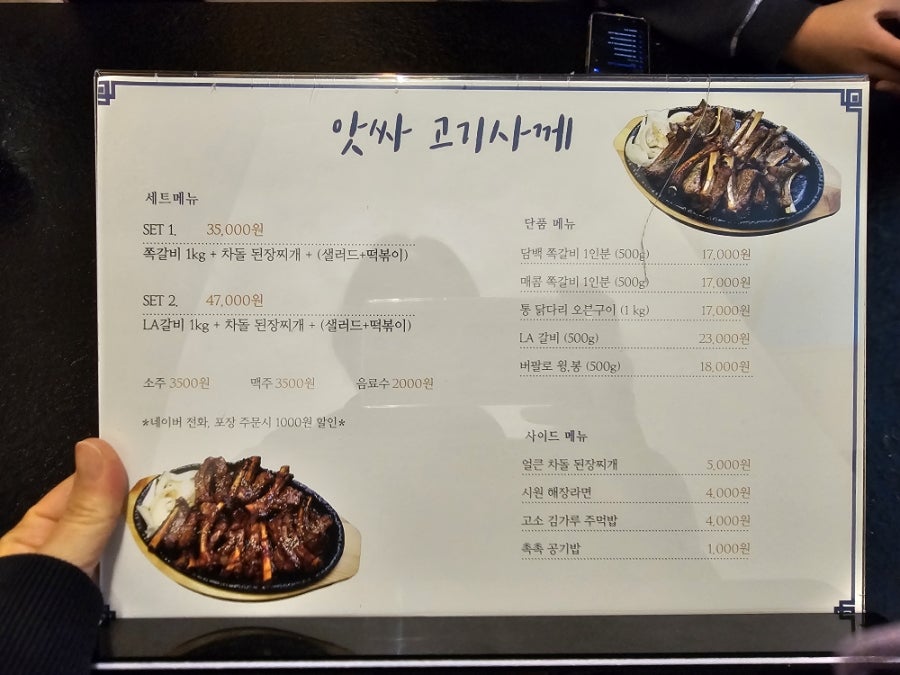 앗싸 고기사께
세트메뉴
SET 1. 35,000원
쪽갈비 1kg + 차돌 된장찌개 + (샐러드+떡볶이)
SET 2. 47,000원
LA갈비 1kg + 차돌 된장찌개 + (샐러드+떡볶이)
소주 3500원 맥주 3500원 음료수 2000원
*네이버 전화, 포장 주문시 1000원 할인*
단품 메뉴
담백 쪽갈비 1인분 (500g) 17,000원
매콤 쪽갈비 1인분 (500g) 17,000원
통 닭다리 오븐구이 (1 kg) 17,000원
LA 갈비 (500g) 23,000원
버팔로 윙,봉 (500g) 18,000원
사이드 메뉴
얼큰 차돌 된장찌개 5,000원
시원 해장라면 4,000원
고소 김가루 주먹밥 4,000원
촉촉 공기밥 1,000원